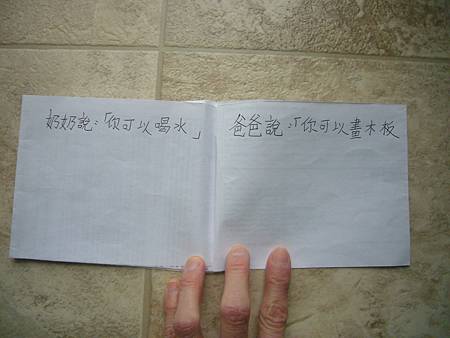 奶奶說:「你可以喝水」
爸爸說:「你可以畫木板